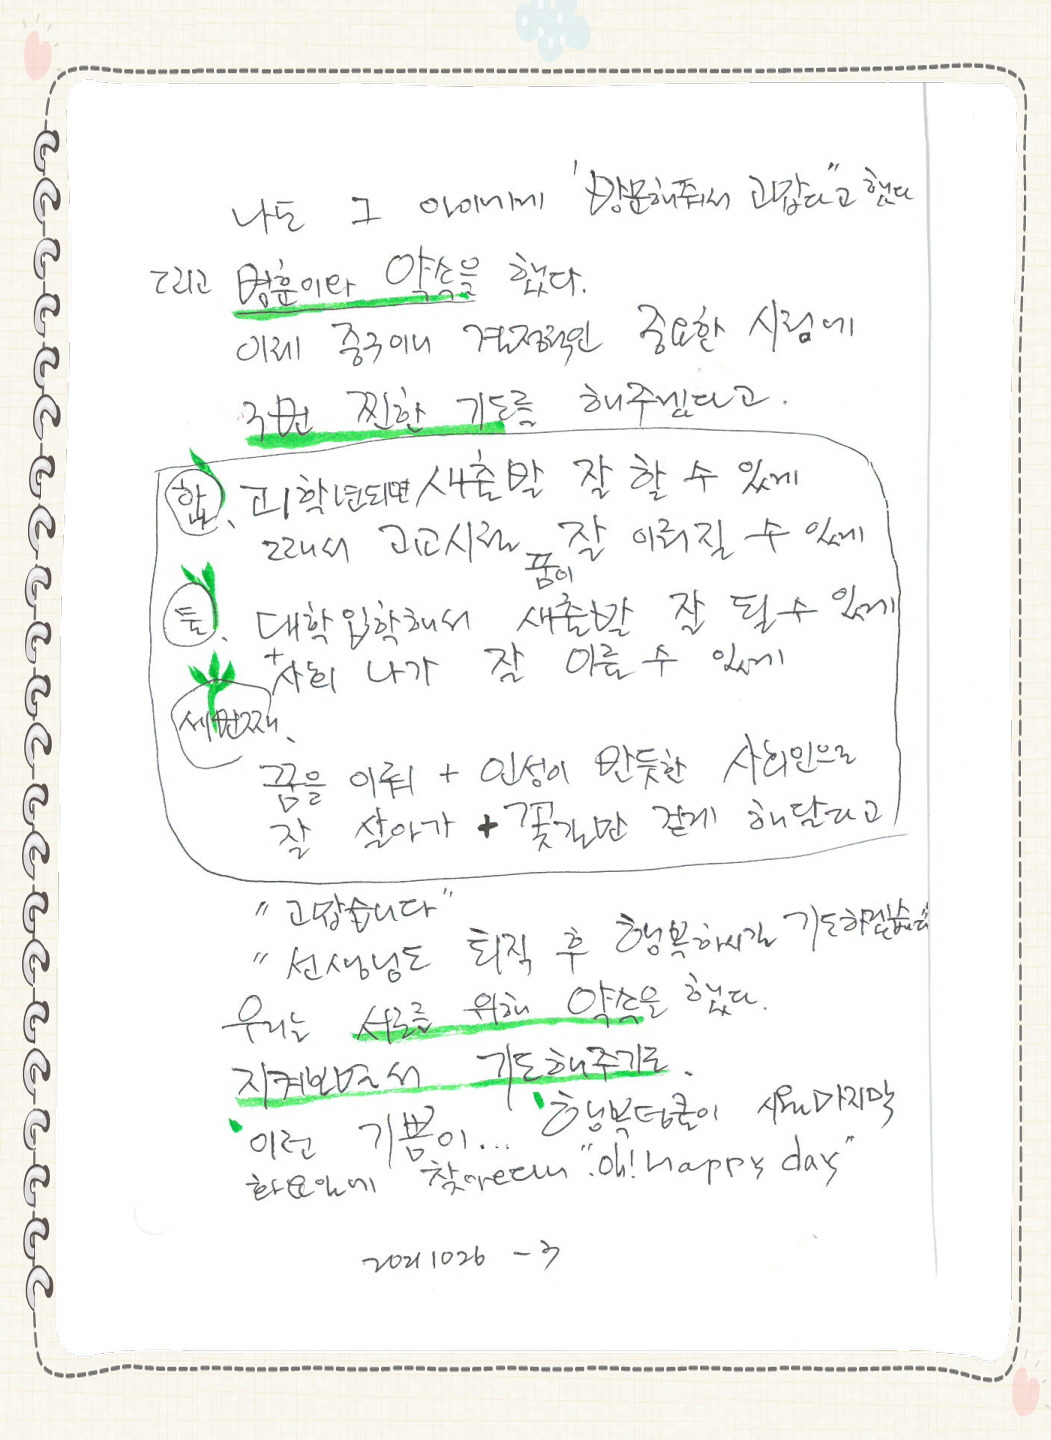 나도 그 아이에게 '방문해줘서 고맙다"고 했다
그리고 명훈이와 약속을 했다.
이제 중2이니 결정적인 중요한 시점에
3번 찐한 기도를 해주겠다고.
하나. 고1학년되면 새출발 잘 할 수 있게
그래서 고교시절 잘 이뤄질 수 있게
꿈이
둘. 대학입학해서 새출발 잘 될 수 있게
+사회 나가 잘 이룰 수 있게
세번째.
꿈을 이뤄 + 인성이 반듯한 사회인으로
잘 살아가 + 꽃길만 걷게 해달라고
"고맙습니다"
"선생님도 퇴직 후 행복하시길 기도하겠습니다
우리는 서로를 위해 약속을 했다.
지켜보면서 기도해주기로.
이런 기쁨이... 행복덩굴이 시월마지막
화요일에 찾아오다니 "oh! happy day"
20211026 -3